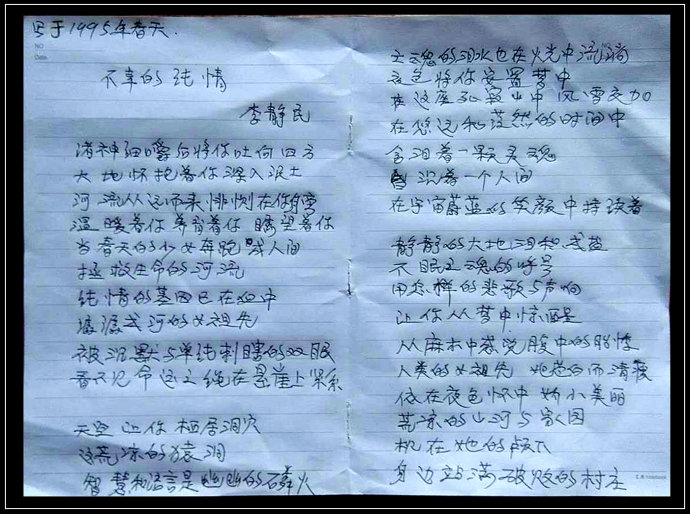 写于1995年春天.
NO
Date
不幸的纯情
李静民
诸神细嚼后将你吐向四方
大地怀抱着你深入泥土
河流从远而来悱恻在你
温暖着你 养育着你 瞩望着你
当春天的少女奔跑 人间
拯救生命的河流
纯情的基因已在血中
潺潺 成河的女祖先
被沉默与单纯刺瞎的双眼
看不见命运之绳在悬崖上紧系
天空让你栖居洞穴
这荒凉的猿洞
智慧和语言是幽幽的磷火
亡魂的泪水也在火光中流淌
夜色将你安置梦中
在这座孤寂山中 风雪交加
在悠远和茫然的时间中
含泪着一颗灵魂
沉着一个人间
在宇宙蔚蓝的笑颜中持续着
静静的大地泪和成盐
不眠亡魂的呼号
用怎样的悲歌与声响
让你从梦中惊醒
从麻木中感觉腹中的胎悸
人类的女祖先 她苍白而清瘦
依在夜色怀中 娇小美丽
荒凉的山河与
在她的
身边站满破败的村庄